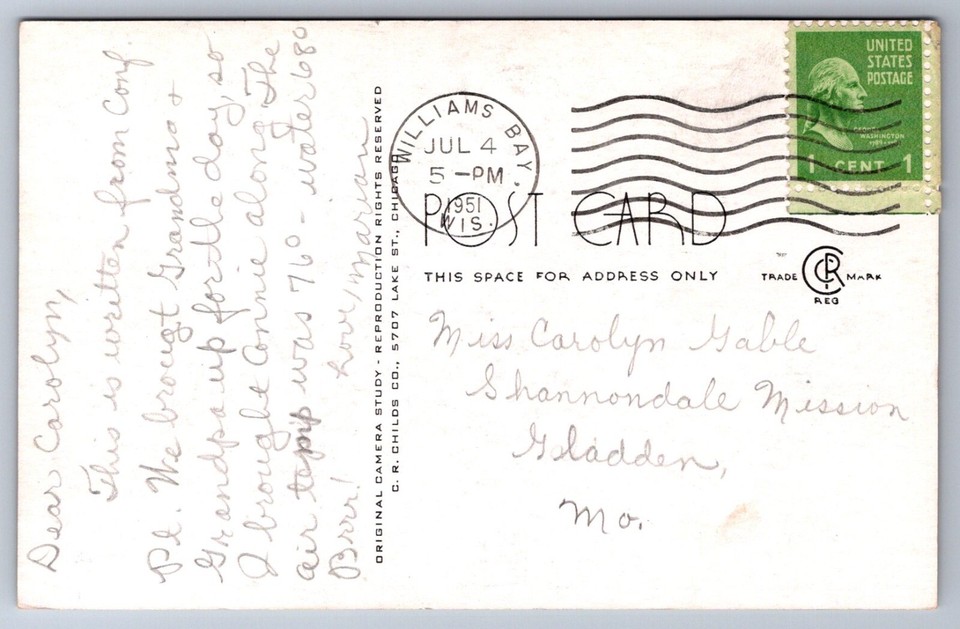 Dear Carolyn,
This is written from Conf.
Pt. We brougt Grandma +
Grandpa up for the day, so
I brought Connie along. The
air temp was 76° - water 68°
Brrr! Love, Marian
ORIGINAL CAMERA STUDY - REPRODUCTION RIGHTS RESERVED
C. R. CHILDS CO., 5707 LAKE ST., CHICAGO
WILLIAMS BAY.
JUL 4
5 -PM
1951
WIS.
UNITED
STATES
POSTAGE
GEORGE
WASHINGTON
1 CENT 1
POST CARD
THIS SPACE FOR ADDRESS ONLY
TRADE CR MARK
REG
Miss Carolyn Gable
Shannondale Mission
Gladden,
Mo.